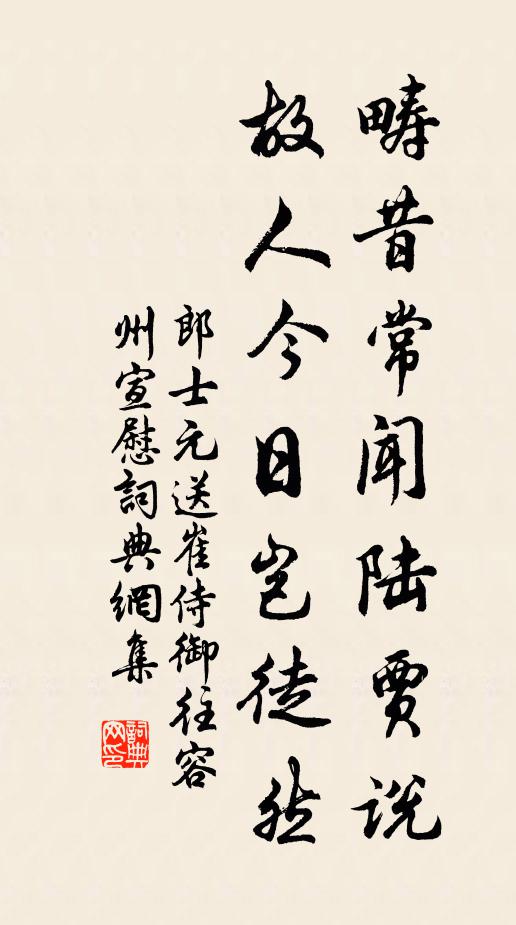 畴昔常闻陆贾说
故人今日岂徒然
郎士元送崔侍御往容
州宣慰詞典網集
詞典
网印